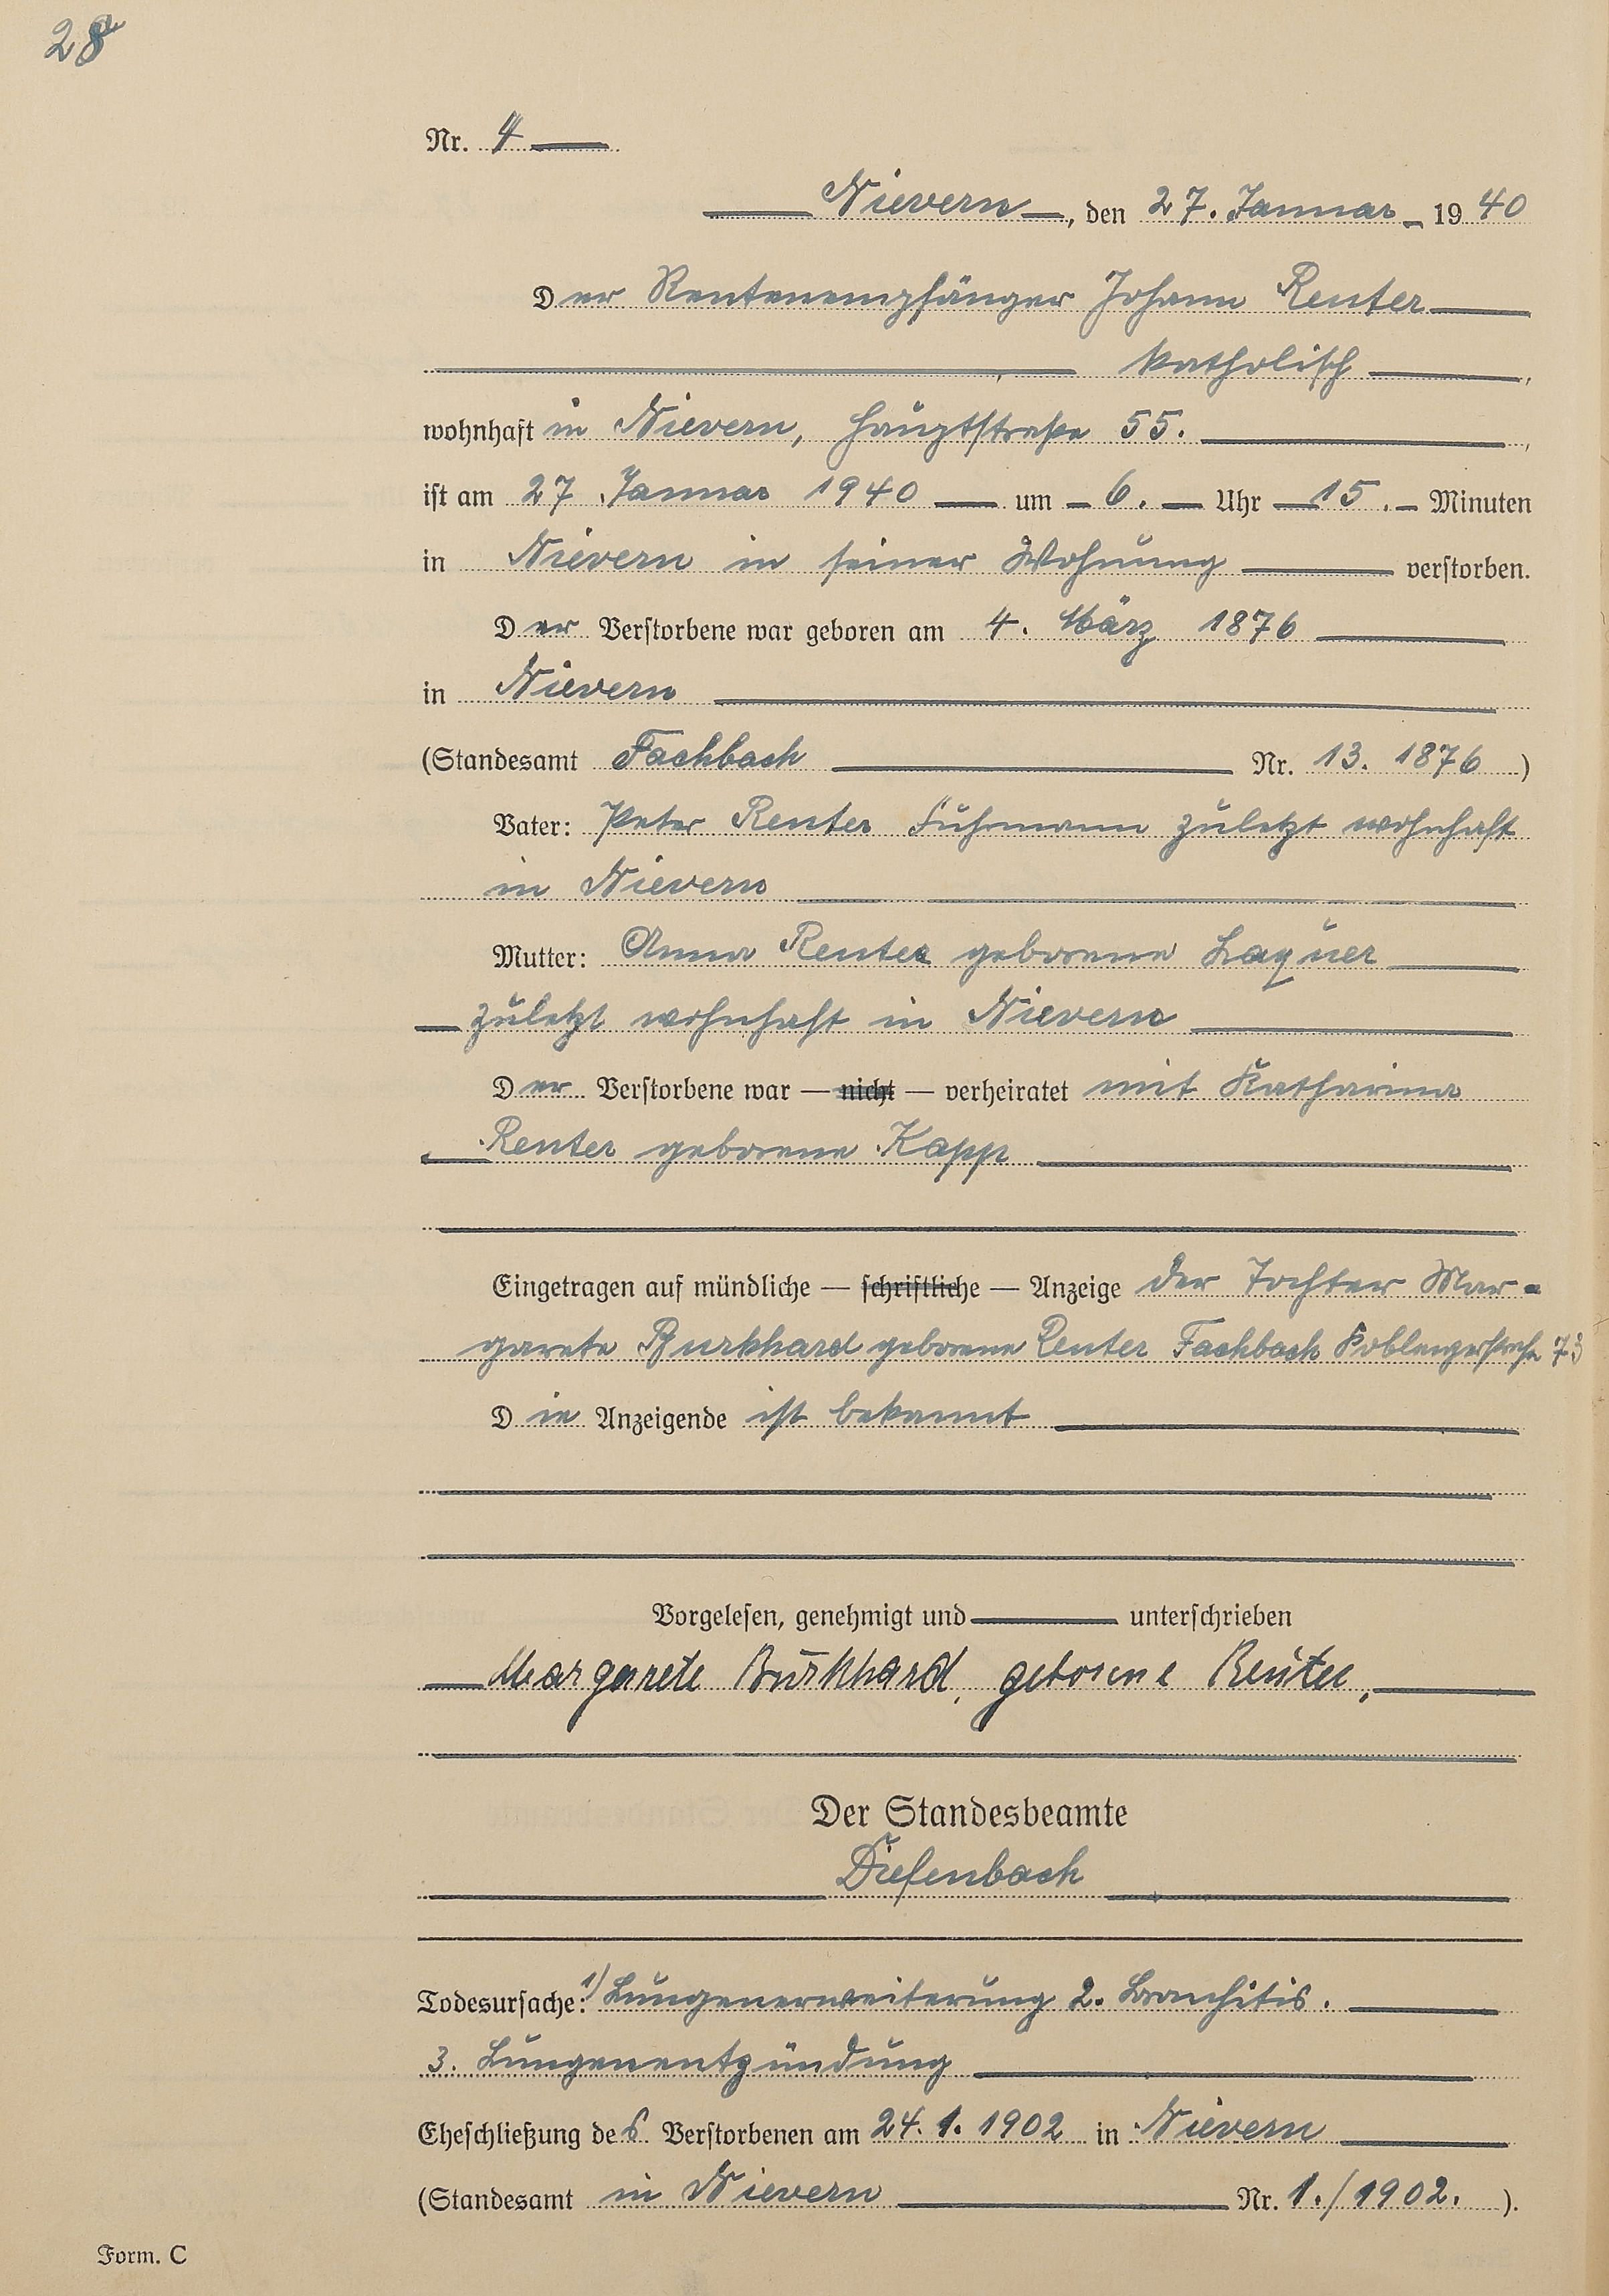 28
Nr. 4
Nievern, den 27. Januar 1940
Der Rentenempfänger Johann Reuter
katholisch,
wohnhaft in Nievern, Hauptstraße 55.,
ist am 27. Januar 1940 um 6. Uhr 15. Minuten
in Nievern in seiner Wohnung verstorben.
Der Verstorbene war geboren am 4. März 1876
in Nievern
(Standesamt Fachbach Nr. 13. 1876)
Vater: Peter Reuter Fuhrmann zuletzt wohnhaft
in Nievern
Mutter: Anna Reuter geborene Laquer
zuletzt wohnhaft in Nievern
Der Verstorbene war — nicht — verheiratet mit Katharina
Reuter geborene Kapp
Eingetragen auf mündliche — schriftliche — Anzeige der Tochter Mar-
garete Burkhard geborene Reuter Fachbach Koblenzerstraße 73
Die Anzeigende ist bekannt
Vorgelesen, genehmigt und unterschrieben
Margarete Burkhard, geborene Reuter,
Der Standesbeamte
Diefenbach
Todesursache: 1) Lungenerweiterung 2. Bronchitis.
3. Lungenentzündung
Eheschließung des Verstorbenen am 24. 1. 1902 in Nievern
(Standesamt in Nievern Nr. 1./1902.).
Form. C